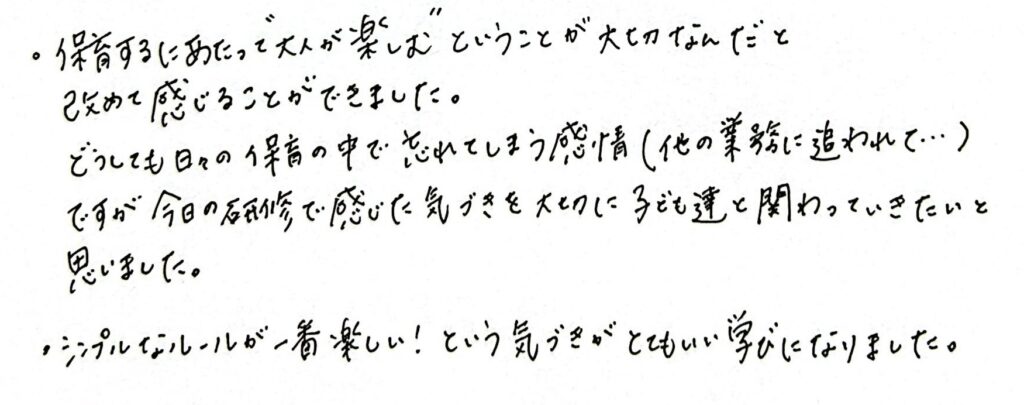 。保育するにあたって"大人が楽しむ"ということが大切なんだと
改めて感じることができました。
どうしても日々の保育の中で忘れてしまう感情(他の業務に追われて…)
ですが今日の研修で感じた気づきを大切に子ども達と関わっていきたいと
思いました。
・シンプルなルールが一番楽しい!という気づきがとてもいい学びになりました。